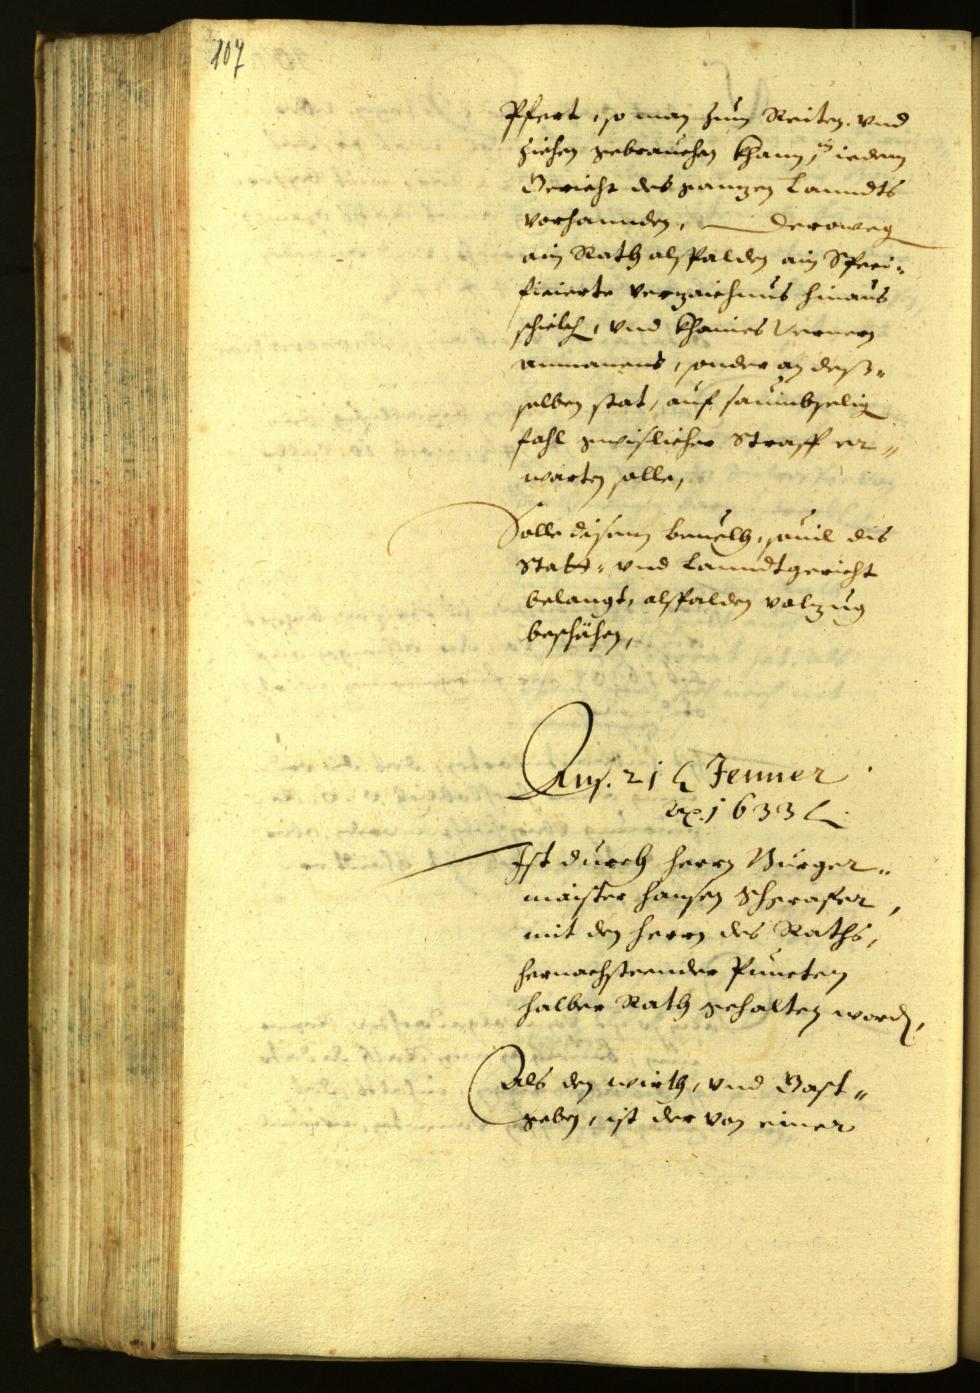 107
Pfert, so man zum Reiten, vnd
ziehen gebrauchen khann, in iedem
Gericht des ganzen Lanndts
vorhannden, Derowegen
ain Rath alspalden ain Speci¬
ficierte verzaichnus hinaus
schickh, vnd khaines vernern
anmanens, sonder an deß¬
selben stat, auf saumbselig
fahl gwislicher Straff er¬
warten solle,
Solle disem beuelh, souil dis
Statt- vnd Lanndtgericht
belangt, alspalden volzug
beschähen,
Auf. 21 Jenner
Ao. 1633
Ist durch herrn Burger¬
maister hansen
mit den herrn des Raths,
hernachsteender Puncten
halber Rath gehalten worden,
Als den wirth, vnd Gast¬
geben, ist der von einer